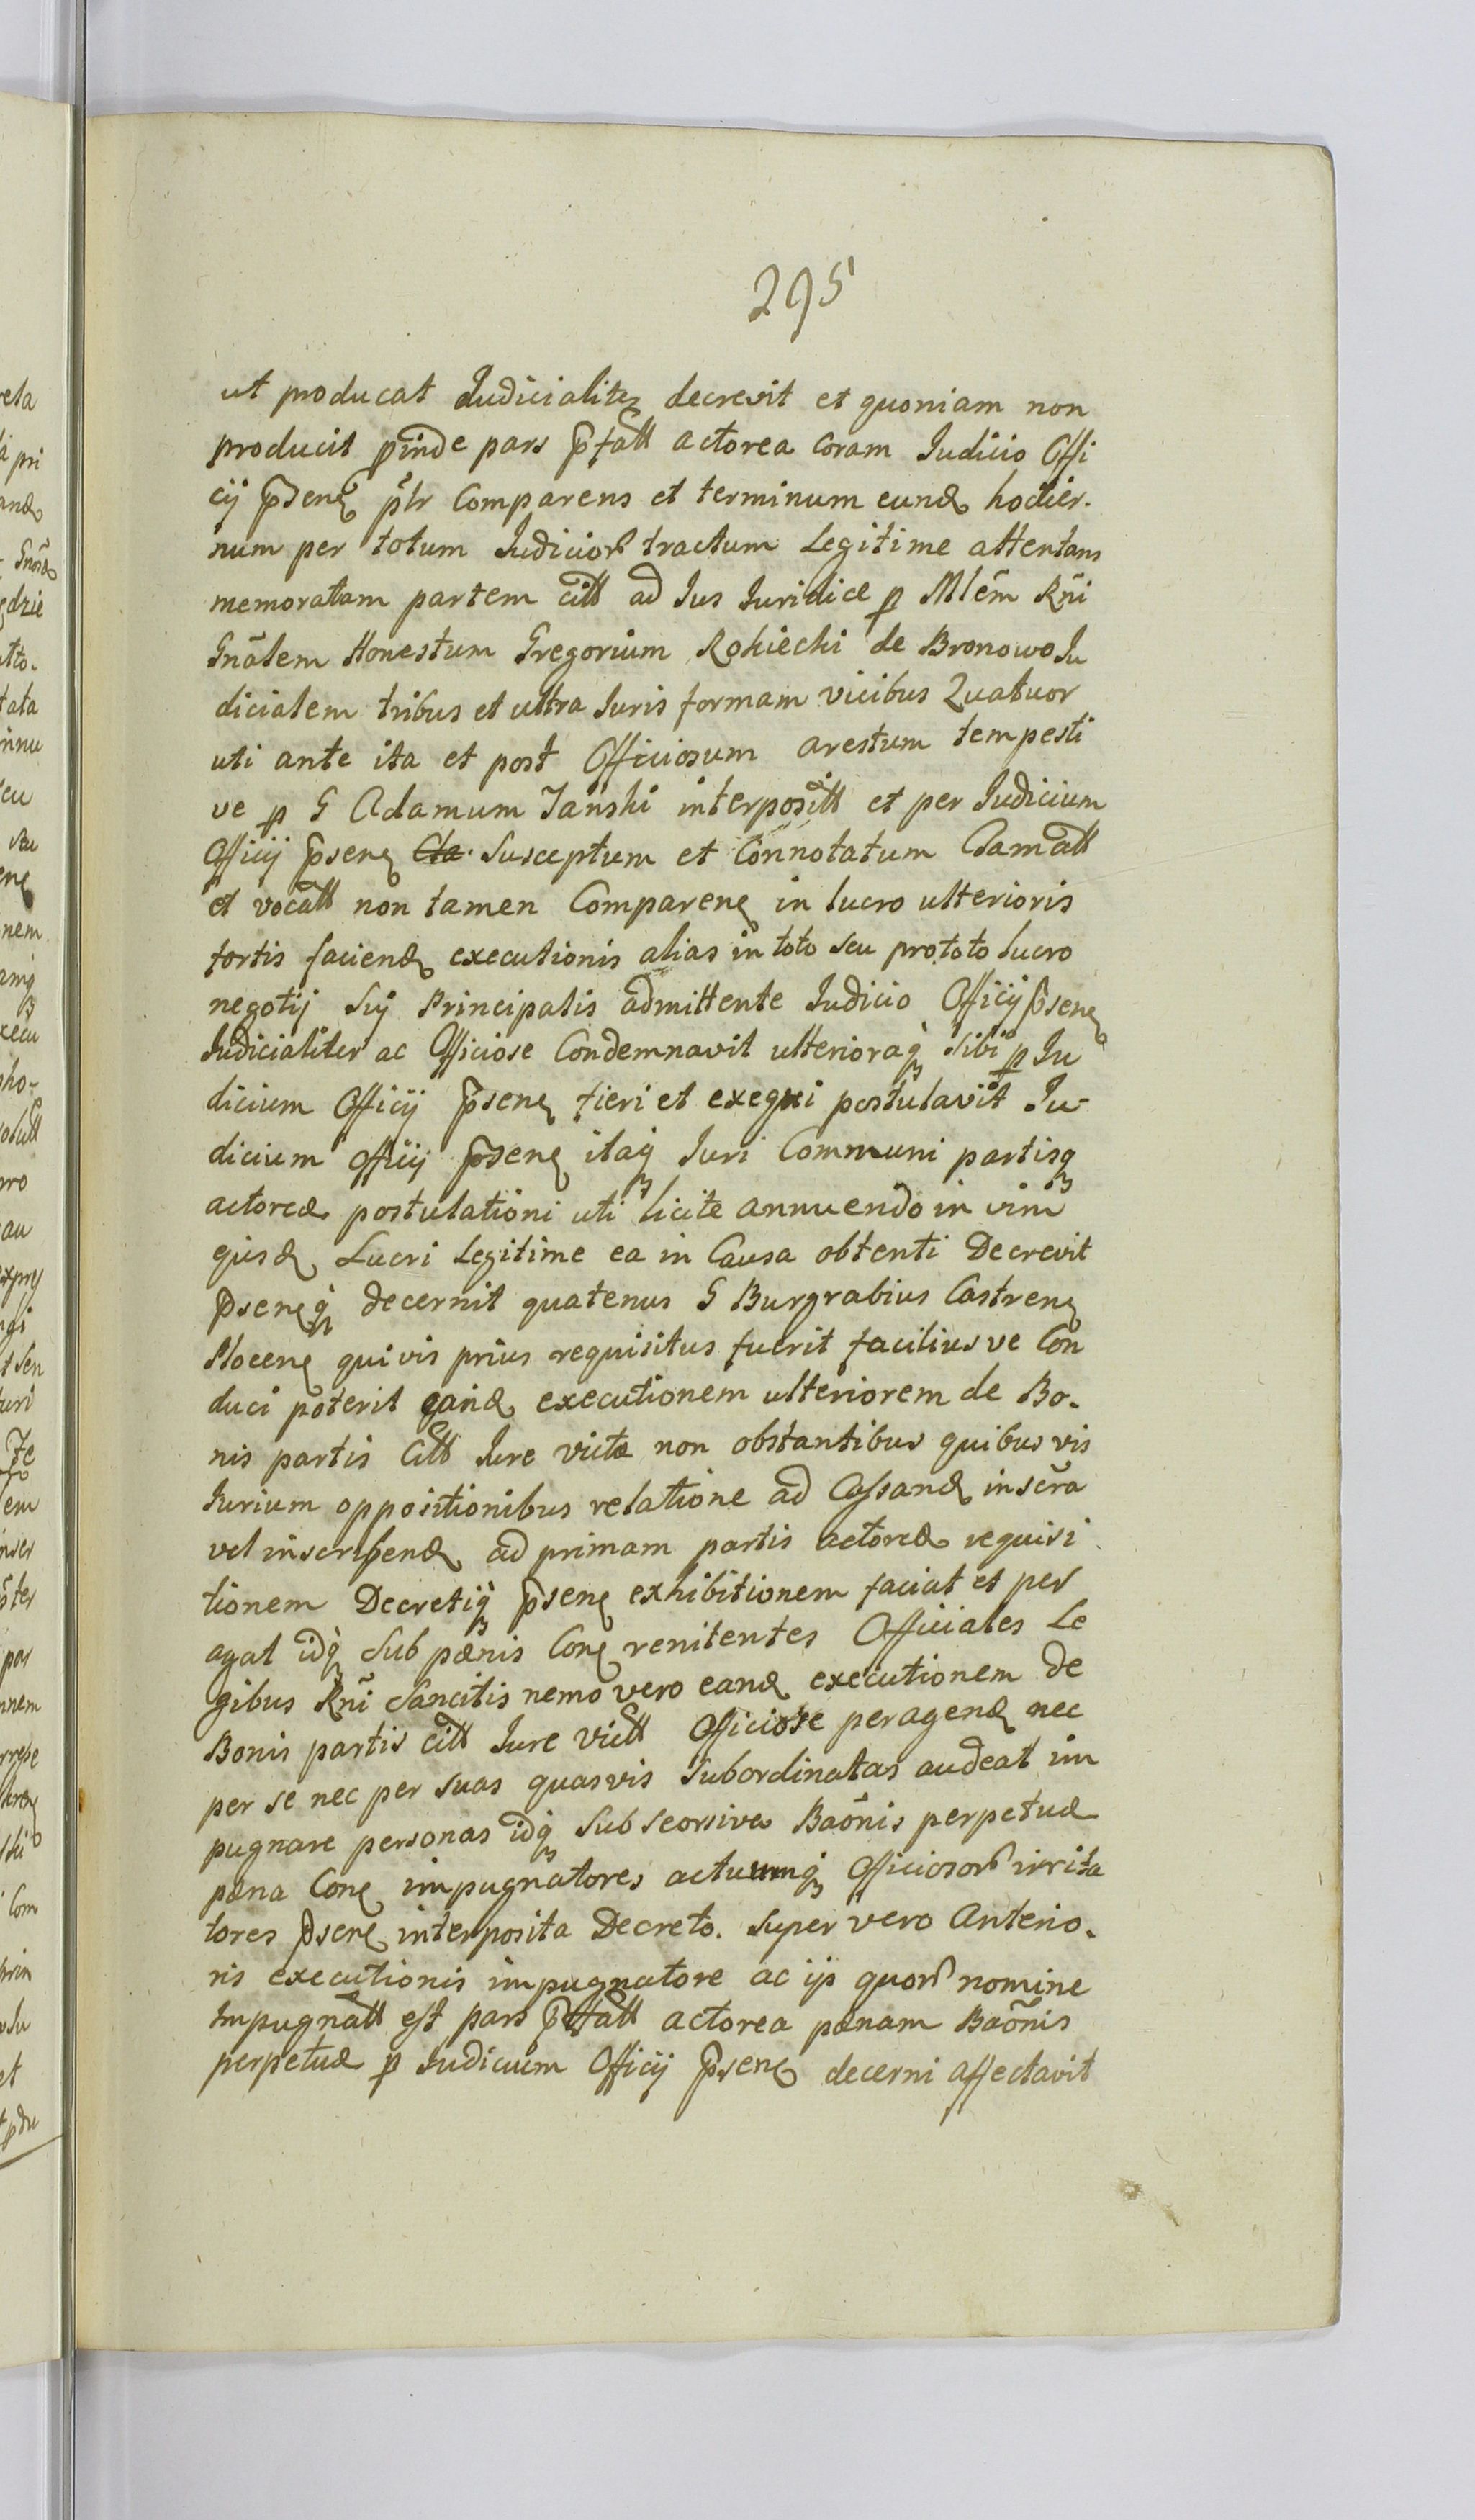 295
ut producat Judicialiter decrevit et quoniam non
producit proinde pars pfatt actorea coram Judicio Offi
cij psen plr Comparens et terminum eund hodier.
num per totum Judicior tractum Legitime attentans
memoratam partem citt ad Jus Juridice p Mlem Rni
Gnalem Honestum Gregorium Rokiecki de Bronowo Ju
dicialem tribus et ultra Juris formam vicibus Quatuor
uti ante ita et post Officiosum arestum tempesti
ve p G Adamum Janski interpositt et per Judicium
Officij psen Susceptum et Connotatum Clamatt
et vocatt non tamen Comparen in lucro ulterioris
fortis faciend executionis alias in toto seu pro toto lucro
negotij Sui Principalis admittente Judicio Officij psen
Judicialiter ac Officiose Condemnavit ulterioraq sibi p Ju
dicium Officij psen fieri et exequi postulavit Ju-
dicium Officij psen itaq Juri Communi partisq
actoreæ postulationi uti licite annuendo in vim
ejusd Lucri Legitime ea in Causa obtenti Decrevit
psenq decernit quatenus G Burgrabius Castren
Plocen qui vis prius requisitus fuerit facilius ve Con
duci poterit eand executionem ulteriorem de Bo.
nis partis Citt Jure victæ non obstantibus quibus vis
Jurium oppositionibus relatione ad Cassand inscra
vel inscribend ad primam partis actoreæ requisi
tionem Decretiq psen exhibitionem faciat et per
agat idq Sub pænis Con renitentes Officiales Le
gibus Rni Sancitis nemo vero eand executionem de
Bonis partis citt Jure victt Officiose peragend nec
per se nec per suas quasvis Subordinatas audeat im
pugnare personas idq Sub seorsiva Baonis perpetuæ
pæna Con impugnatores actuumq Officiosor irrita
tores psen interposita Decreto. Super vero Anterio.
ris executionis impugnatore ac ijs quor nomine
Impugnatt est pars pfatt actorea pænam Baonis
perpetuæ p Judicium Officij psen decerni affectavit